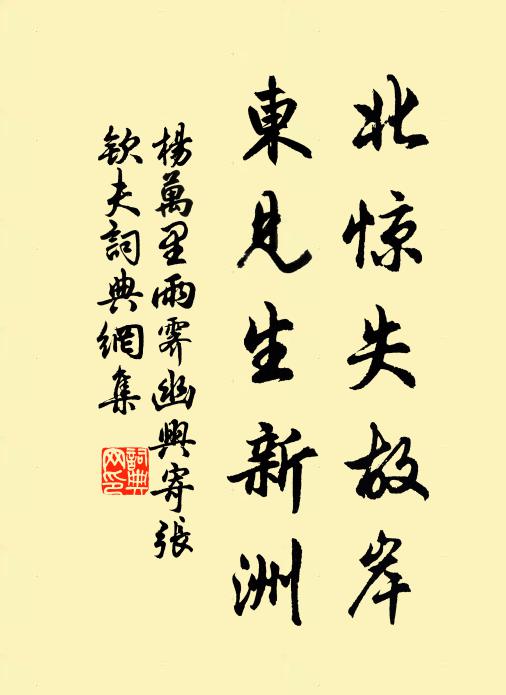 北惊失故岸
東見生新洲
楊萬里雨霽幽興寄張
欽夫詞典網集
詞典
网印